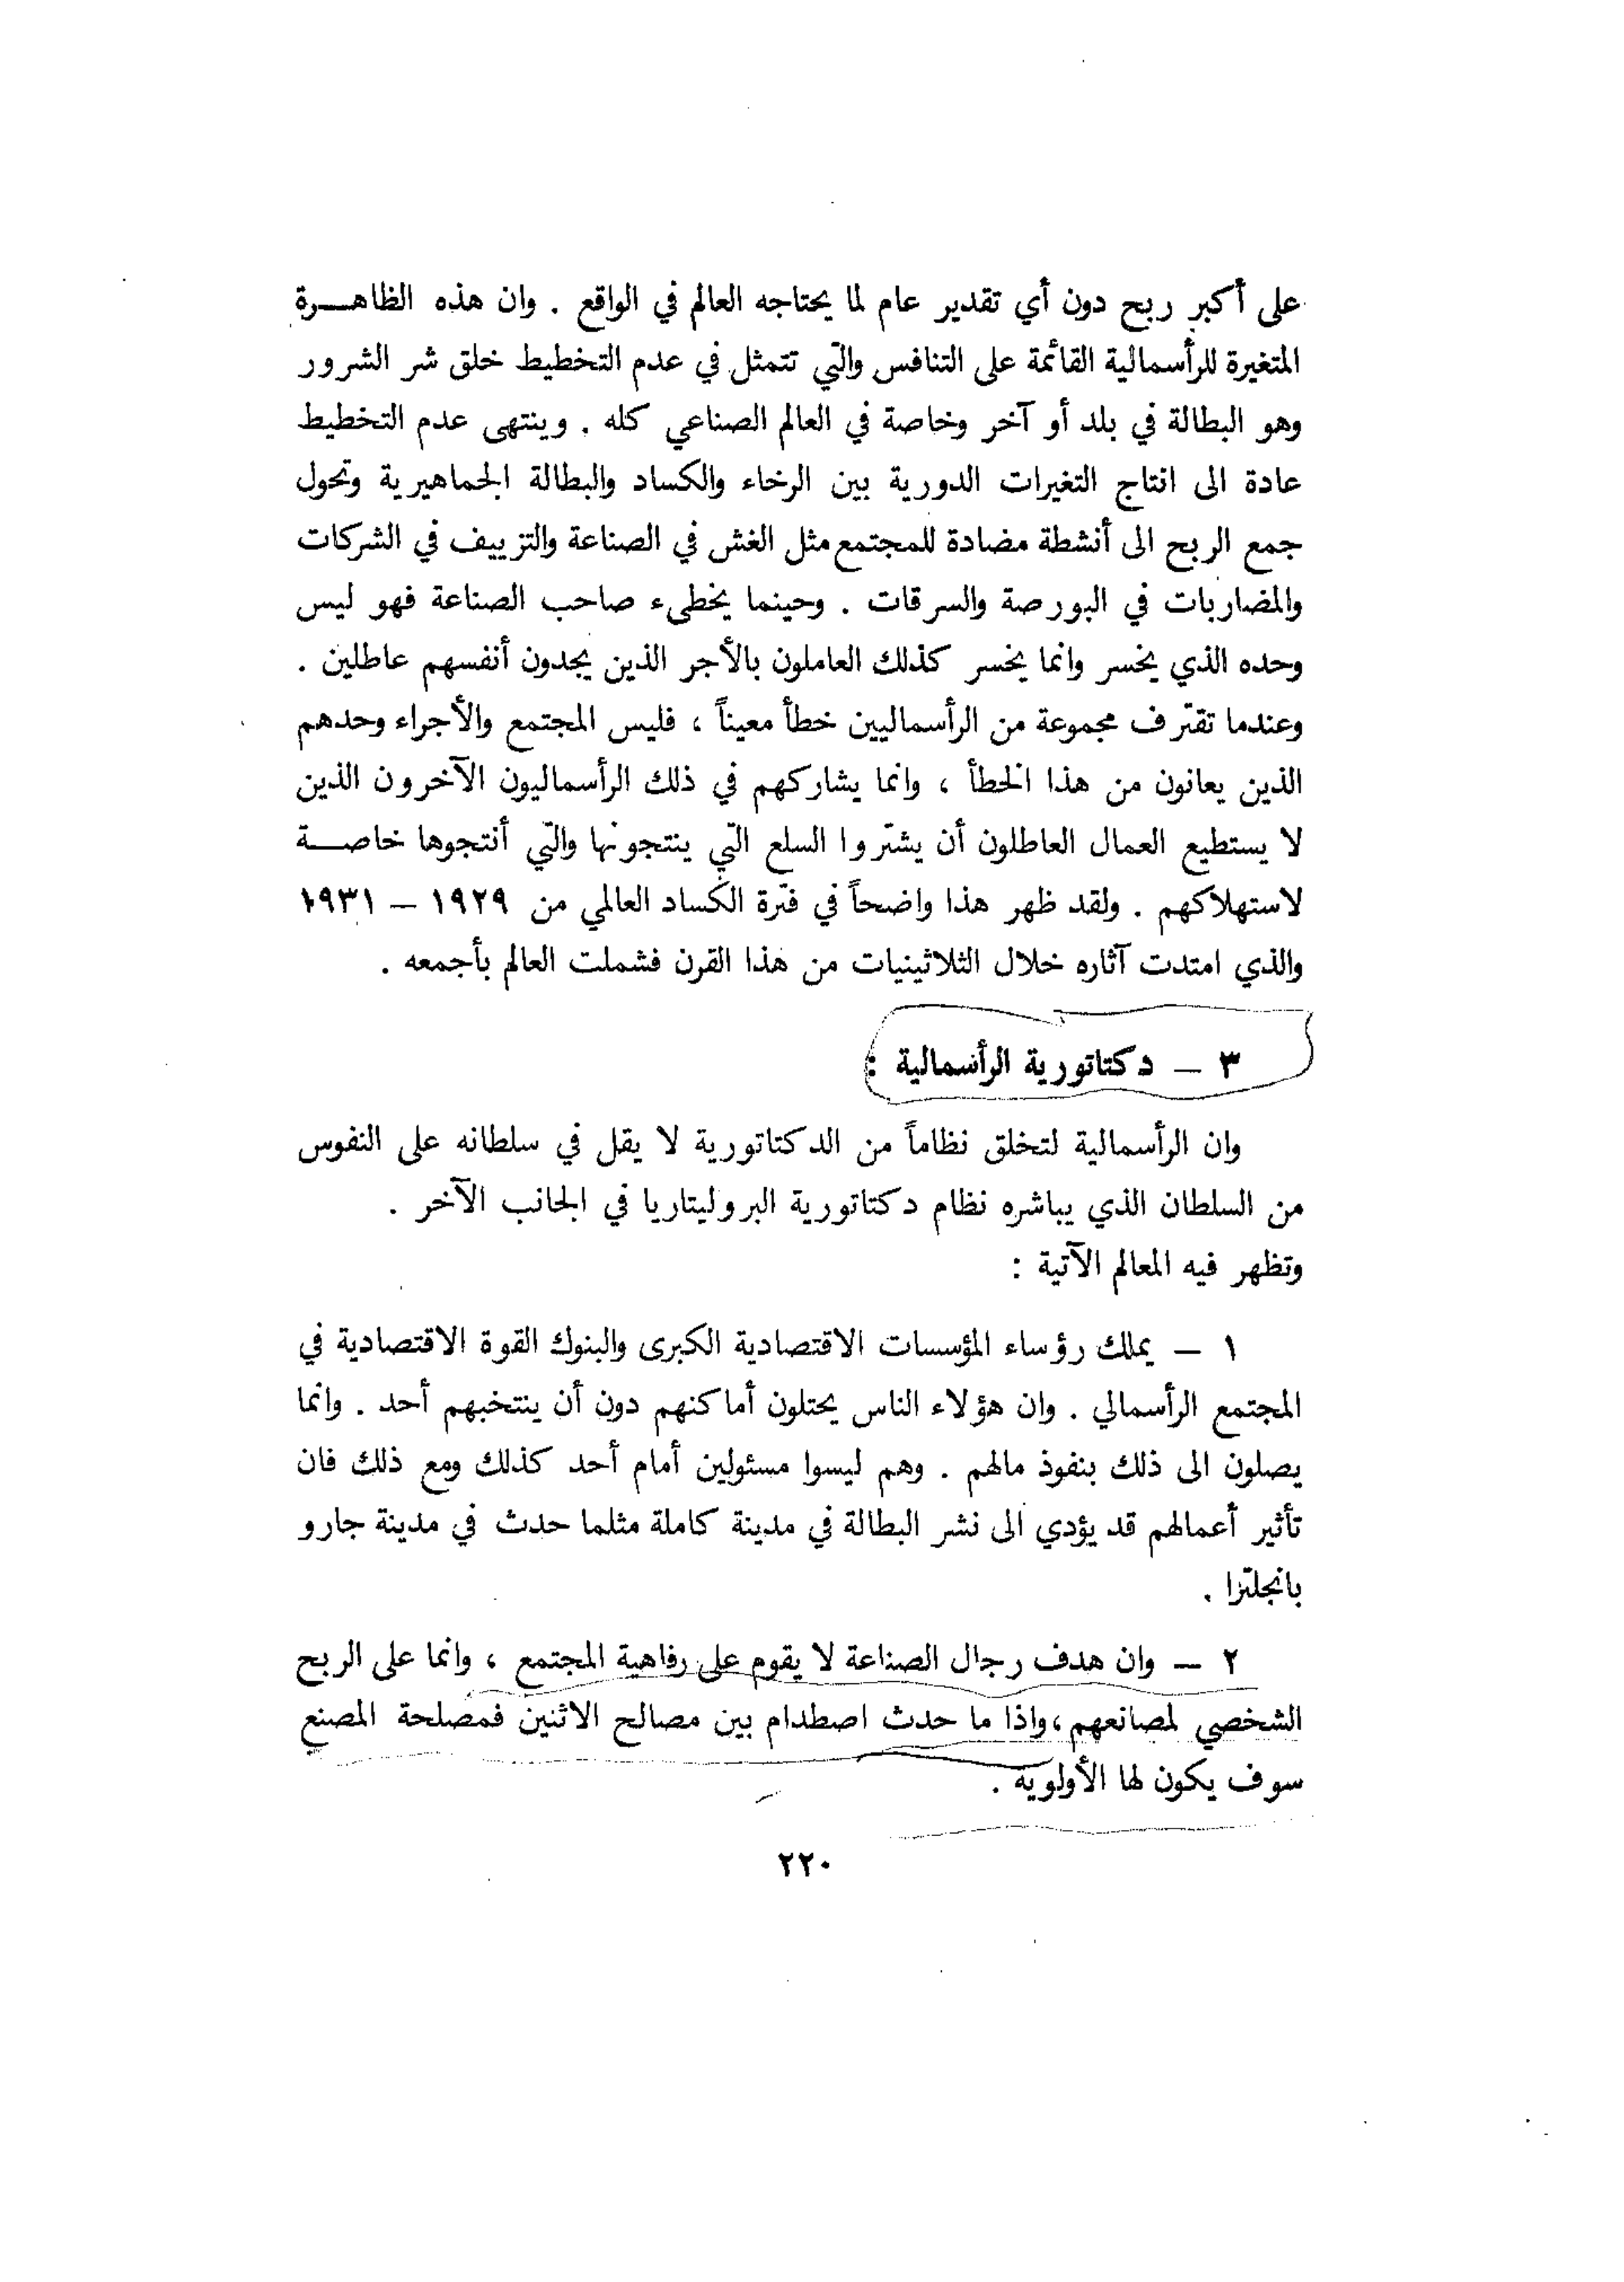 على أكبر ربح دون أي تقدير عام لما يحتاجه العالم في الواقع . وان هذه الظاهـــرة
المتغيرة للرأسمالية القائمة على التنافس والتي تتمثل في عدم التخطيط خلق شر الشرور
وهو البطالة في بلد أو آخر وخاصة في العالم الصناعي كله . وينتهى عدم التخطيط
عادة الى انتاج التغيرات الدورية بين الرخاء والكساد والبطالة الجماهيرية وتحول
جمع الربح الى أنشطة مضادة للمجتمع مثل الغش في الصناعة والتزييف في الشركات
والمضاربات في البورصة والسرقات . وحينما يخطىء صاحب الصناعة فهو ليس
وحده الذي يخسر وانما يخسر كذلك العاملون بالأجر الذين يجدون أنفسهم عاطلين .
وعندما تقترف مجموعة من الرأسماليين خطأ معيناً ، فليس المجتمع والأجراء وحدهم
الذين يعانون من هذا الخطأ ، وانما يشاركهم في ذلك الرأسماليون الآخرون الذين
لا يستطيع العمال العاطلون أن يشتروا السلع التي ينتجونها والتي أنتجوها خاصـــة
لاستهلاكهم . ولقد ظهر هذا واضحاً في فترة الكساد العالمي من ١٩٢٩ – ١٩٣١
والذي امتدت آثاره خلال الثلاثينيات من هذا القرن فشملت العالم بأجمعه .
٣ – دكتاتورية الرأسمالية :
وان الرأسمالية لتخلق نظاماً من الدكتاتورية لا يقل في سلطانه على النفوس
من السلطان الذي يباشره نظام دكتاتورية البروليتاريا في الجانب الآخر .
وتظهر فيه المعالم الآتية :
١ – يملك رؤساء المؤسسات الاقتصادية الكبرى والبنوك القوة الاقتصادية في
المجتمع الرأسمالي . وان هؤلاء الناس يحتلون أماكنهم دون أن ينتخبهم أحد . وانما
يصلون الى ذلك بنفوذ مالهم . وهم ليسوا مسئولين أمام أحد كذلك ومع ذلك فان
تأثير أعمالهم قد يؤدي الى نشر البطالة في مدينة كاملة مثلما حدث في مدينة جارو
بانجلترا .
٢ – وان هدف رجال الصناعة لا يقوم على رفاهية المجتمع ، وانما على الربح
الشخصي لمصانعهم ، واذا ما حدث اصطدام بين مصالح الاثنين فمصلحة المصنع
سوف يكون لها الأولوية .
٢٢٠